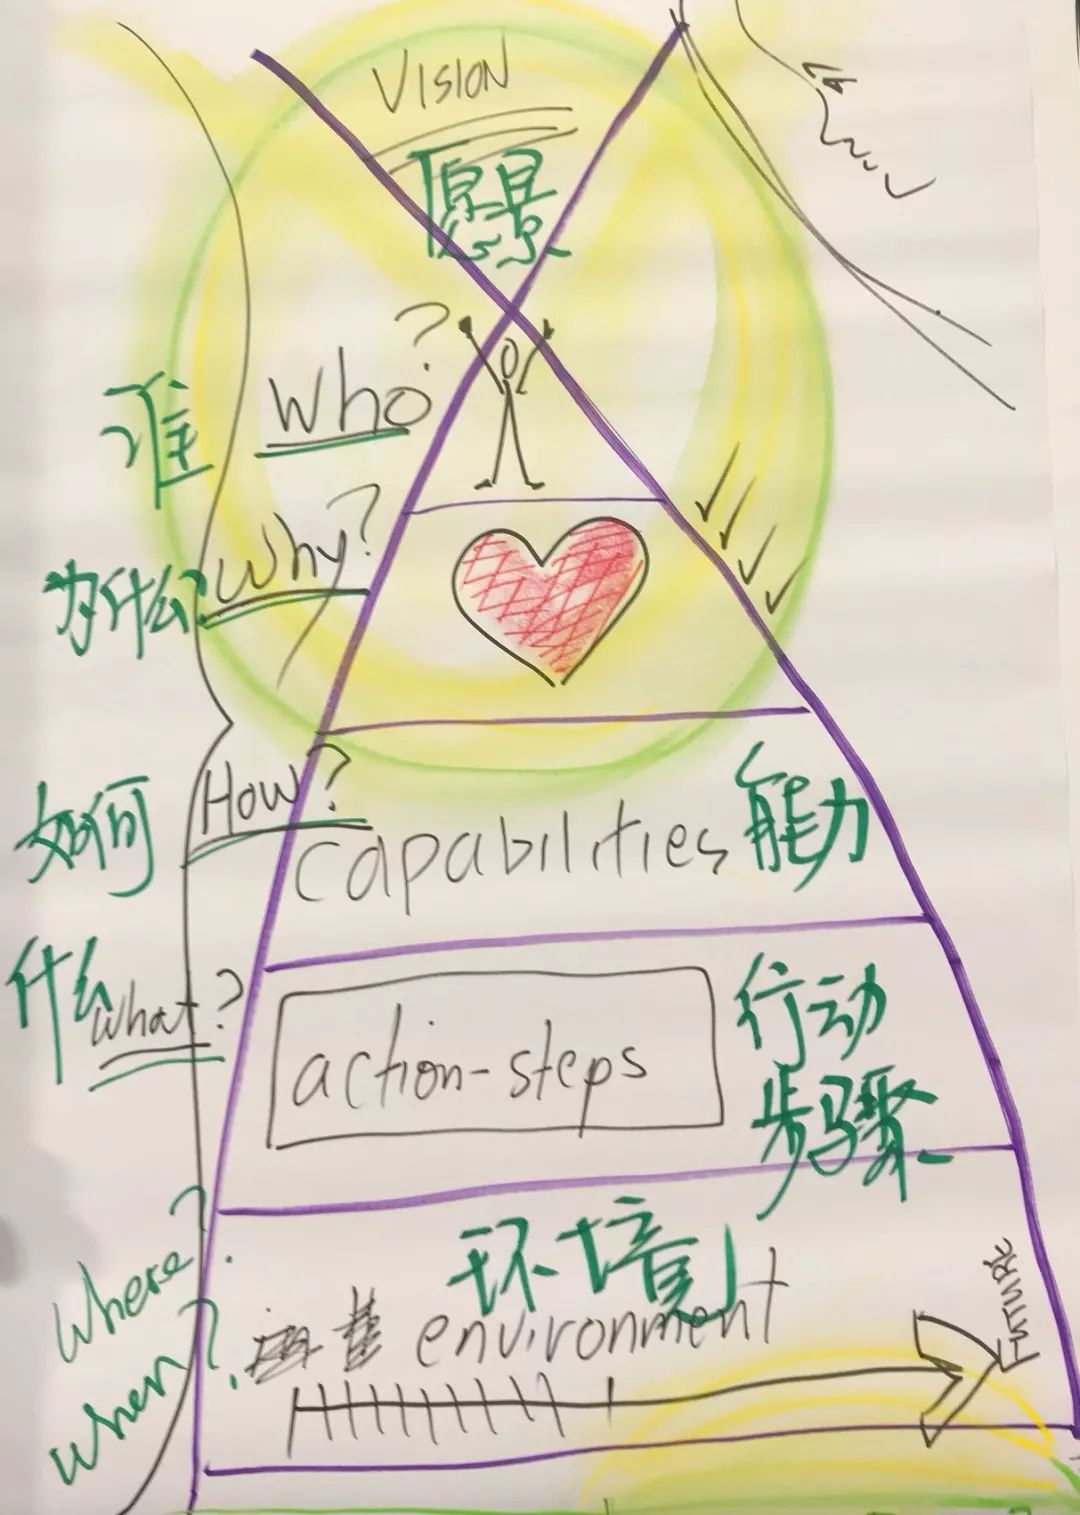 VISION
愿景
Who?
谁
Why?
为什么
How?
如何
capabilities 能力
什么
What?
action-steps
行动
步骤
Where?
环境
environment
When?
FUTURE